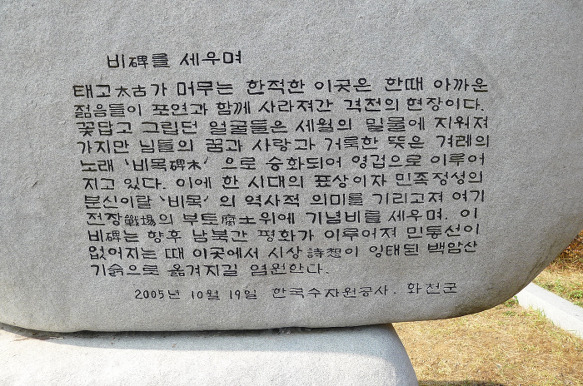 비碑를 세우며
태고太古가 머무는 한적한 이곳은 한때 아까운
젊음들이 포연과 함께 사라져간 격전의 현장이다.
꽃답고 그립던 얼굴들은 세월의 밀물에 지워져
가지만 님들의 꿈과 사랑과 거룩한 뜻은 겨레의
노래 '비목碑木' 으로 승화되어 영겁으로 이루어
지고 있다. 이에 한 시대의 표상이자 민족정성의
분신이랄 '비목' 의 역사적 의미를 기리고져 여기
전장戰場의 부토腐土위에 기념비를 세우며. 이
비碑는 향후 남북간 평화가 이루어져 민통선이
없어지는 때 이곳에서 시상 詩想이 잉태된 백암산
기슭으로 옮겨지길 염원한다.
2005년 10월 19일 한국수자원공사. 화천군